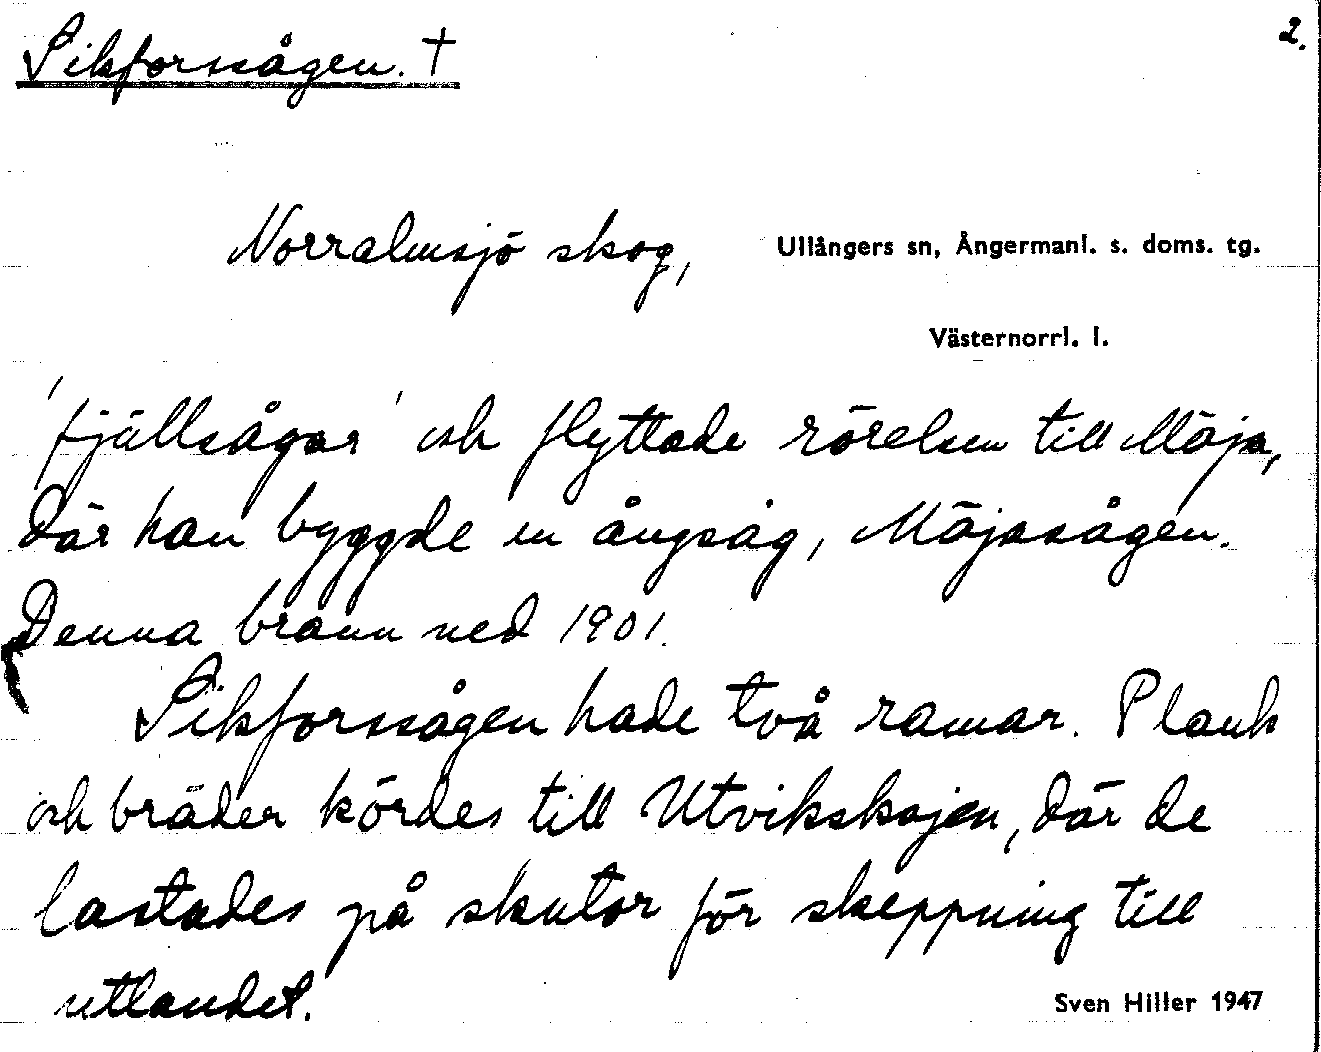 Sikforssågen. †
2.
Norralmsjö skog,
Ullångers sn, Ångermanl. s. doms. tg.
Västernorrl. l.
'fjällsågar' och flyttade rörelsen till Mäja,
där han byggde en ångsåg, Mäjasågen.
Denna brann ned 1901.
Sikforssågen hade två ramar. Plank
och bräder kördes till Utvikskajen, där de
lastades på skutor för skeppning till
utlandet.
Sven Hiller 1947